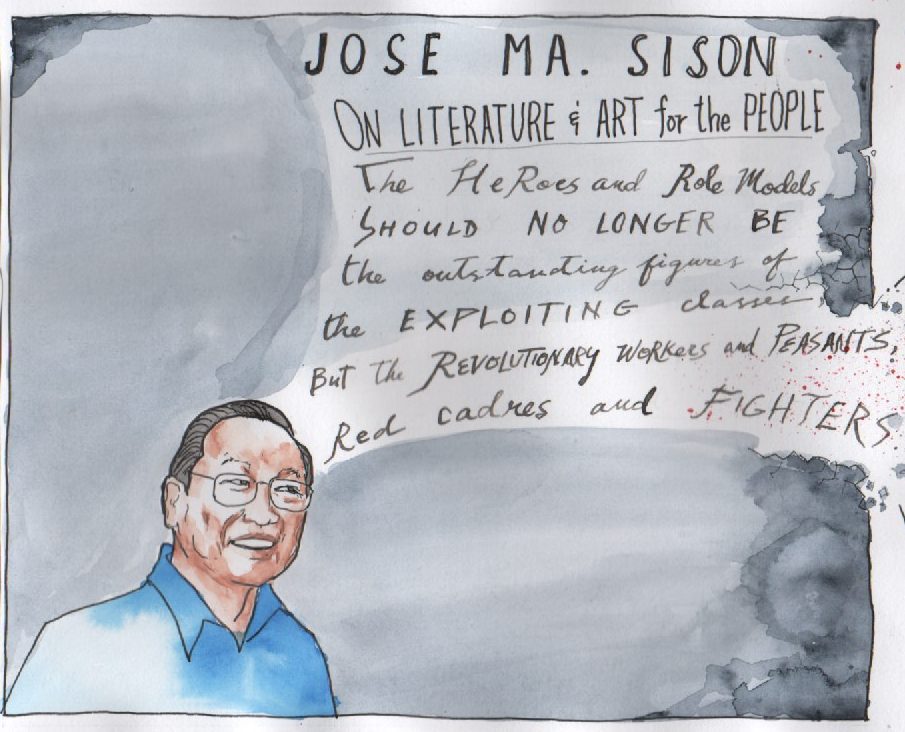 JOSE MA. SISON
ON LITERATURE & ART for the PEOPLE
The HeRoes and Role Models
SHOULD NO LONGER BE
the outstanding figures of
the EXPLOITING classes
But the REVOLUTIONARY WORKers and PEASANTS,
Red cadres and FIGHTERS